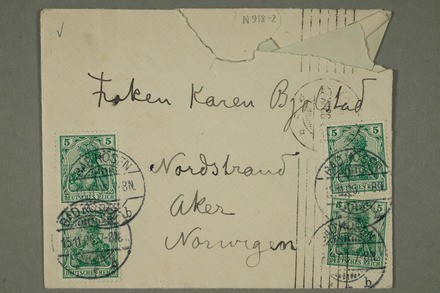 N 918-2
Frøken Karen Bjølstad
Nordstrand
Aker
Norwegen
5 5
DEUTSCHES REICH
5 5
DEUTSCHES REICH
5 5
DEUTSCHES REICH
5
DEUTSCHES REICH
BAD KÖSEN